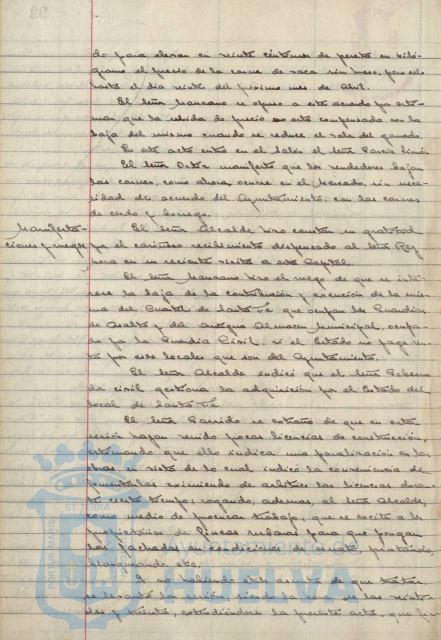 do para elevar en veinte céntimos de peseta en kiló-
gramo el precio de la carne de vaca sin hueso, pero solo
hasta el dia veinte del próximo mes de Abril.
El Señor Manzano se opuso a este acuerdo por esti-
mar que la subida de precio no está compensada con la
baja del mismo cuando se reduce el valor del ganado.
En este acto entra en el Salón el Señor García
El Señor Ortiz manifestó que los vendedores bajan
las carnes, como ahora ocurre en el Mercado, sin nece-
sidad de acuerdo del Ayuntamiento, con las carnes
de cerdo y borrego.
Manifesta-
ciones y ruegos
El Señor Alcalde hizo constar su gratitud
por el cariñoso recibimiento dispensado al Señor
en su reciente visita a esta Capital.
El Señor Manzano hizo el ruego de que se inte-
rese la baja de la contribución y exención de la mis-
ma del Cuartel de Santa Fé que ocupan los Guardias
de Asalto y del antiguo Almacen Municipal, ocupa-
do por la Guardia Civil, si el Estado no paga ren-
ta por esos locales que son del Ayuntamiento.
El Señor Alcalde indicó que el Señor Goberna-
dor civil gestiona la adquisición por el Estado del
local de Santa Fé
El Señor Garrido se extrañó de que en esta
sesión hayan venido pocas licencias de construcción,
estimando que ello indica una paralización en las
obras en vista de lo cual indicó la conveniencia de
fomentarlas eximiendo de arbitrios las licencias duran-
te cierto tiempo; rogando, además, al Señor Alcalde,
como medio de procurar trabajo, que se excite a los
propietarios de fincas urbanas para que pongan
las fachadas en condiciones de ornato, pintando,
blanqueando etc.
Y no habiendo otros asuntos de que tratar
se levantó la sesión, siendo la hora de las veinti-
dos y treinta, extendiéndose la presente acta, que fir
PORTUS MARIS
ET TERRÆ
Ayuntamiento de
HUELVA